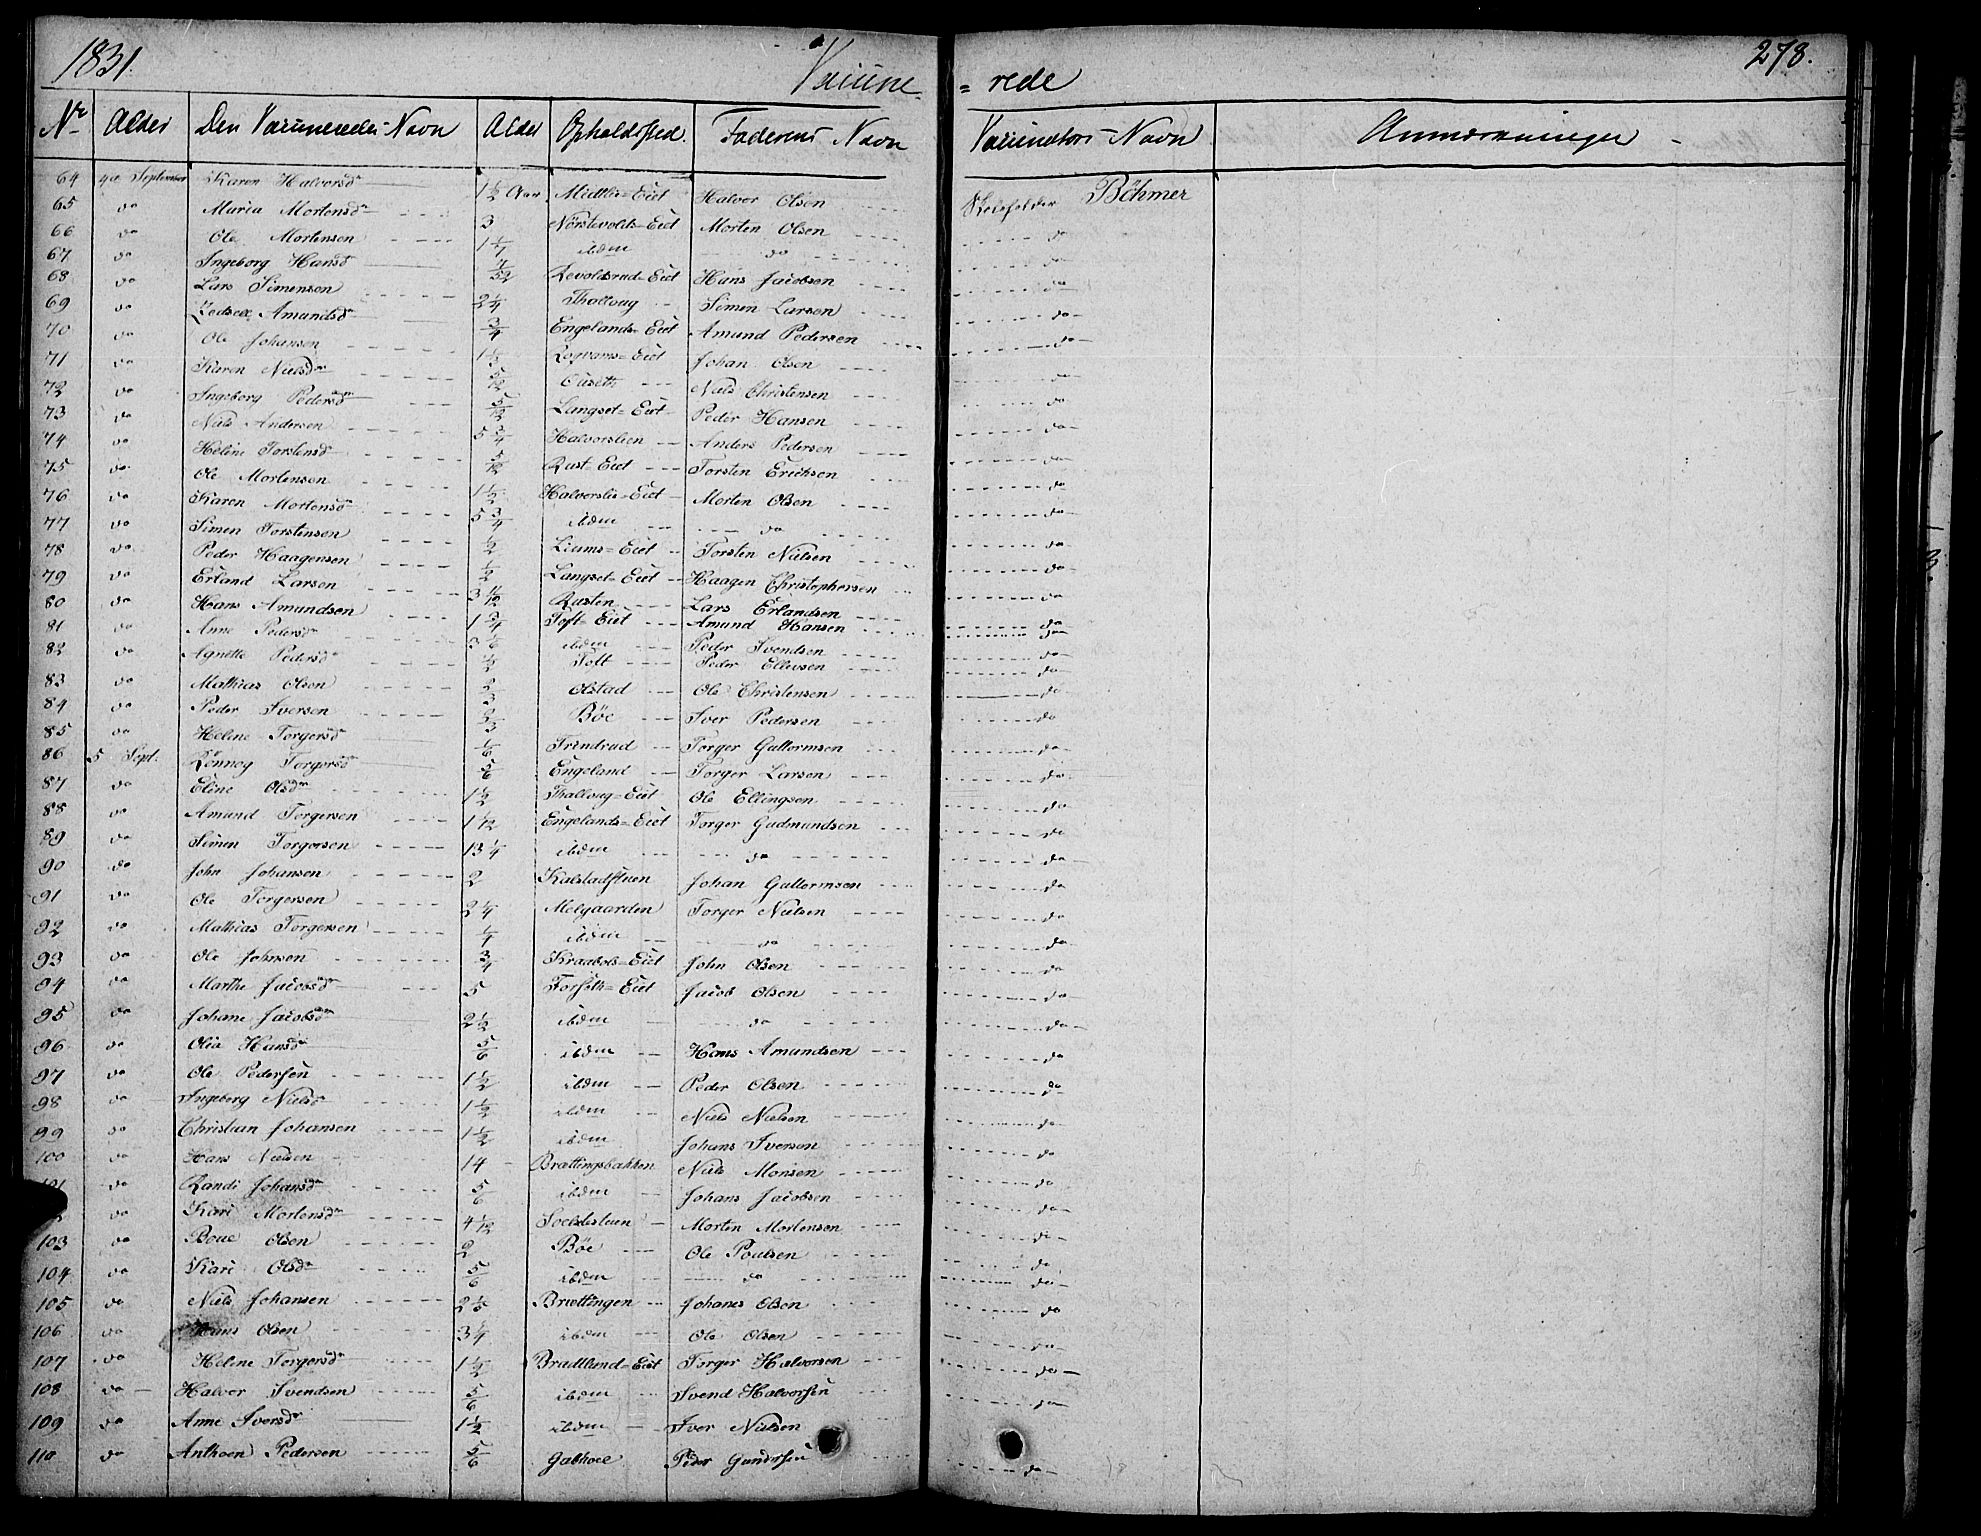 1831. Vaccine- = rede 278.
No Alder Den Vaccineredes Navn Alder Opholdssted. Faderens Navn Vaccinators Navn Anmærkninger
64 4de September Karen Halversdr 1 1/2 Aar Midtlie-Eiet Halver Olsen Böhmer
65 do Maria Mortensdr 3 Morten Olsen do
66 do Ole Mortensen ibdm do do
67 do Ingeborg Hansdr Revoldsrud-Eiet Hans Jacobsen do
68 do Lars Simensen 2 1/4 Thalloug Simen Larsen do
69 do Amundsdr 3/4 Engelands-Eiet Amund Pedersen do
70 do Ole Johansen Johan Olsen do
71 do Karen Nielsdr 5/12 Niels Christensen do
72 do Ingeborg Pedersdr 5/12 Langset-Eiet Peder Hansen do
73 do Niels Andersen 5 3/4 Halvorslien Anders Pedersen do
74 do Heline Torstensdr 5/12 Rust-Eiet Torsten Erichsen do
75 do Ole Mortensen 1 1/2 Halvorslie-Eiet Morten Olsen do
76 do Karen Mortensdr 5 3/4 ibdm do do
77 do Simen Torstensen 1/2 Liums-Eiet Torsten Nielsen do
78 do Peder Haagensen 1/2 Langset-Eiet Haagen Christophersen do
79 do Erland Larsen 3 11/12 Rusten Lars Erlandsen do
80 do Hans Amundsen 1 3/4 Toft-Eiet Amund Hansen do
81 do Anne Pedersdr 3 1/6 ibdm Peder Svendsen do
82 do Agnette Pedersdr 1/2 Toft Peder Ellevsen do
83 do Mathias Olsen 2/3 Olstad Ole Christensen do
84 do Peder Iversen 2/3 Böe Iver Pedersen do
85 do Helene Torgersdr 1/6 Trindrud Torger Guttormsen do
86 5 Sept. Rönnog Torgersdr 5/6 Engeland Torger Larsen do
87 do Eline Olsdr 1 1/2 Thalloug-Eiet Ole Ellingsen do
88 do Amund Torgersen 1 1/12 Engelands-Eiet Torger Gudmundsen do
89 do Simen Torgersen 13 1/4 ibdm do do
90 do John Johansen 2 Kalstadstuen Johan Guttormsen do
91 do Ole Torgersen 2 1/4 Melgaarden Torger Nielsen do
92 do Mathias Torgersen 1/4 ibdm do do
93 do Ole Johnsen 3/4 Kraabøls-Eiet John Olsen do
94 do Marthe Jacobsdr 5 Forseth-Eiet Jacob Olsen do
95 do Johane Jacobsdr 2 1/2 ibdm do do
96 do Olia Hansdr 5/6 ibdm Hans Amundsen do
97 do Ole Pedersen 1 1/2 ibdm Peder Olsen do
98 do Ingeborg Nielsdr 1 1/2 ibdm Niels Nielsen do
99 do Christian Johansen 1 1/2 ibdm Johans Iversen do
100 do Hans Nielsen 14 Brættingsbakken Niels Monsen do
101 do Randi Johansdr 5/6 ibdm Johans Jacobsen do
2 do Kari Mortensdr 4 1/12 Morten Mortensen do
103 do Boue Olsen 2 Böe Ole Poulsen do
104 do Kari Olsdr 5/6 ibdm do do
105 do Niels Johansen Brættingen Johanes Olsen do
106 do Hans Olsen 3 1/4 ibdm Ole Olsen do
107 do Helene Torgersdr 1 1/2 Bradtland-Eiet Torger Halvorsen do
108 do Halvor Svendsen 5/6 ibdm Svend Halvorsen do
109 do Anne Iversdr 1 1/2 ibdm Iver Nielsen
110 do Anthoen Pedersen 5/6 Gabhoel Peder Gundersen do